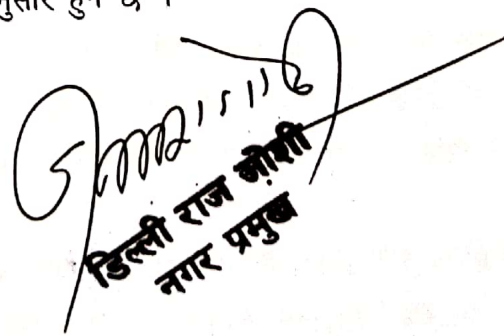 डिल्ली राज ओशी
नगर प्रमुख